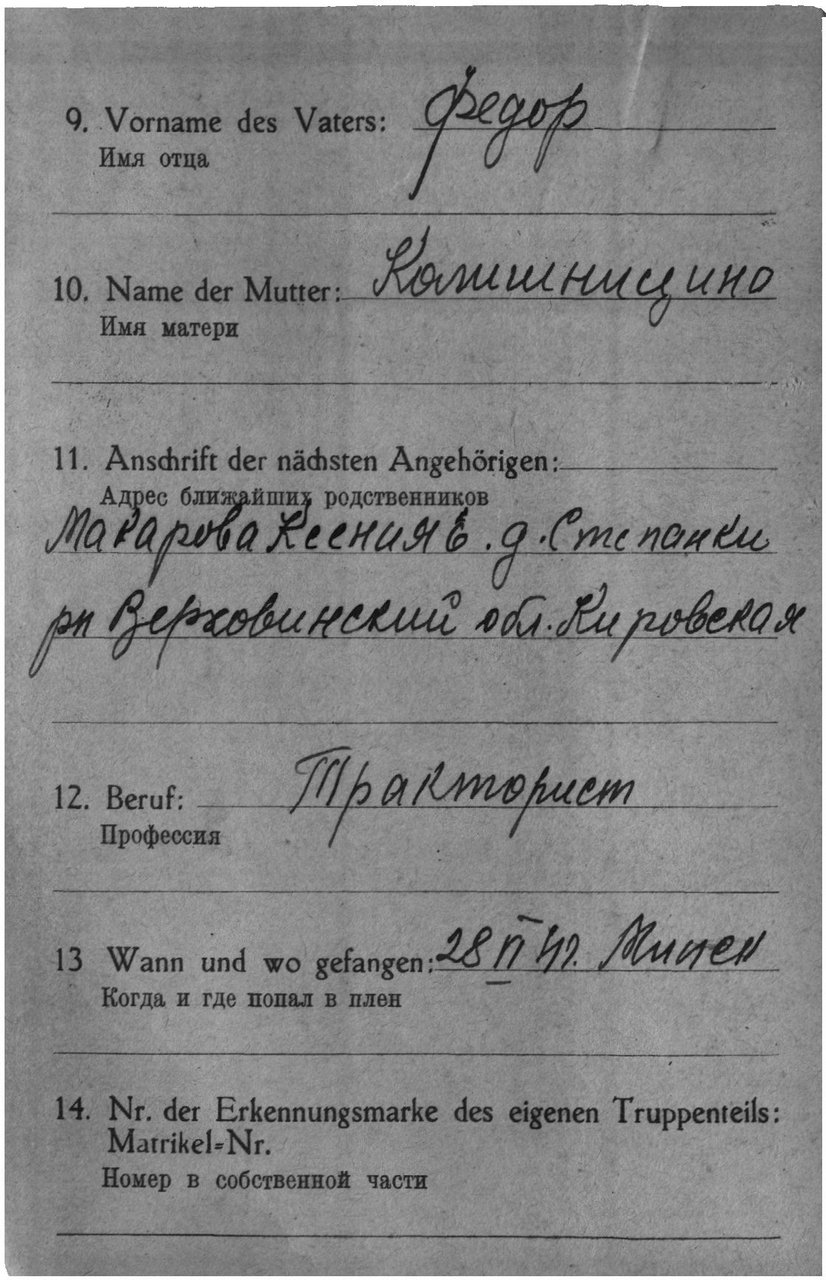 9. Vorname des Vaters: Федор
Имя отца
10. Name der Mutter:
Имя матери
11. Anschrift der nächsten Angehörigen:
Адрес ближайших родственников
Макарова Ксения Е. д. Степанки
рн Верховинский обл. Кировская
12. Beruf: Тракторист
Профессия
13 Wann und wo gefangen: 28 VI 41. Минск
Когда и где попал в плен
14. Nr. der Erkennungsmarke des eigenen Truppenteils:
Matrikel=Nr.
Номер в собственной части